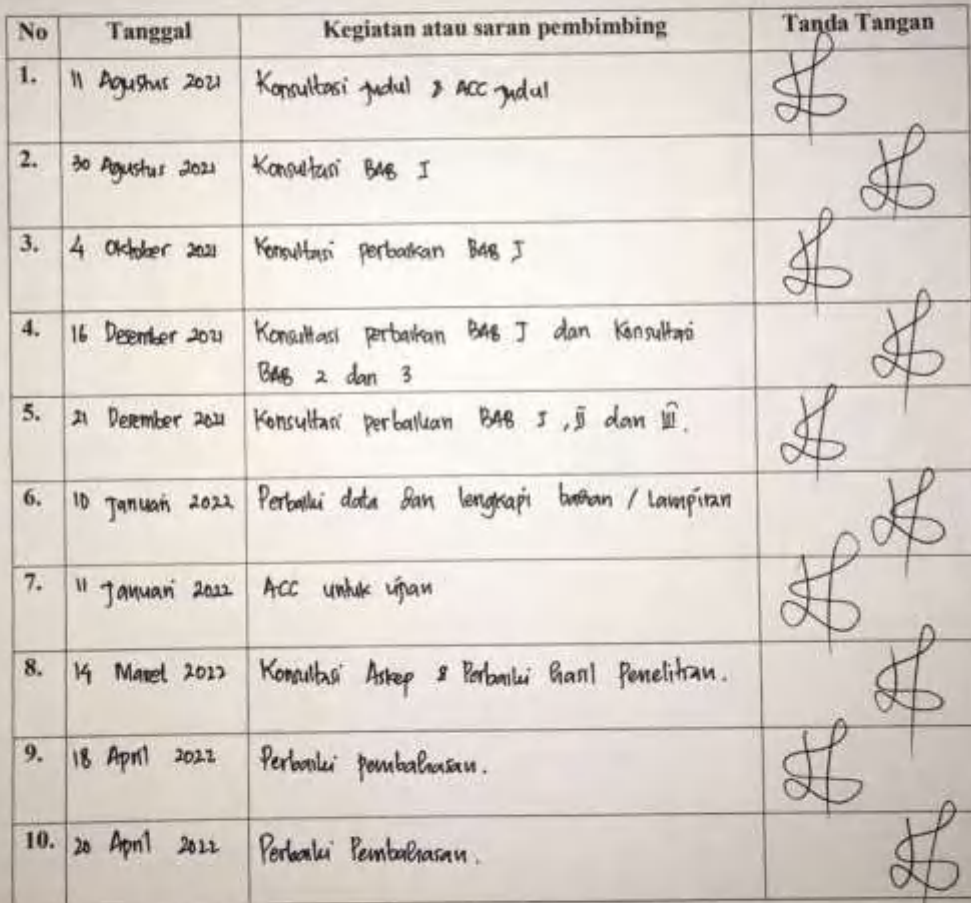 No Tanggal Kegiatan atau saran pembimbing Tanda Tangan
1. 11 Agustus 2021 Konsultasi judul & ACC judul
2. 30 Agustus 2021 Konsultasi BAB I
3. 4 Oktober 2021 Konsultasi perbaikan BAB I
4. 16 Desember 2021 Konsultasi perbaikan BAB I dan Konsultasi
BAB 2 dan 3
5. 21 Desember 2021 Konsultasi perbaikan BAB I, II dan III.
6. 10 Januari 2022 Perbaiki data dan lengkapi bahan / Lampiran
7. 11 Januari 2022 ACC untuk ujian
8. 14 Maret 2022 Konsultasi Askep & Perbaiki hasil Penelitian.
9. 18 April 2022 Perbaiki pembahasan.
10. 20 April 2022 Perbaiki Pembahasan.